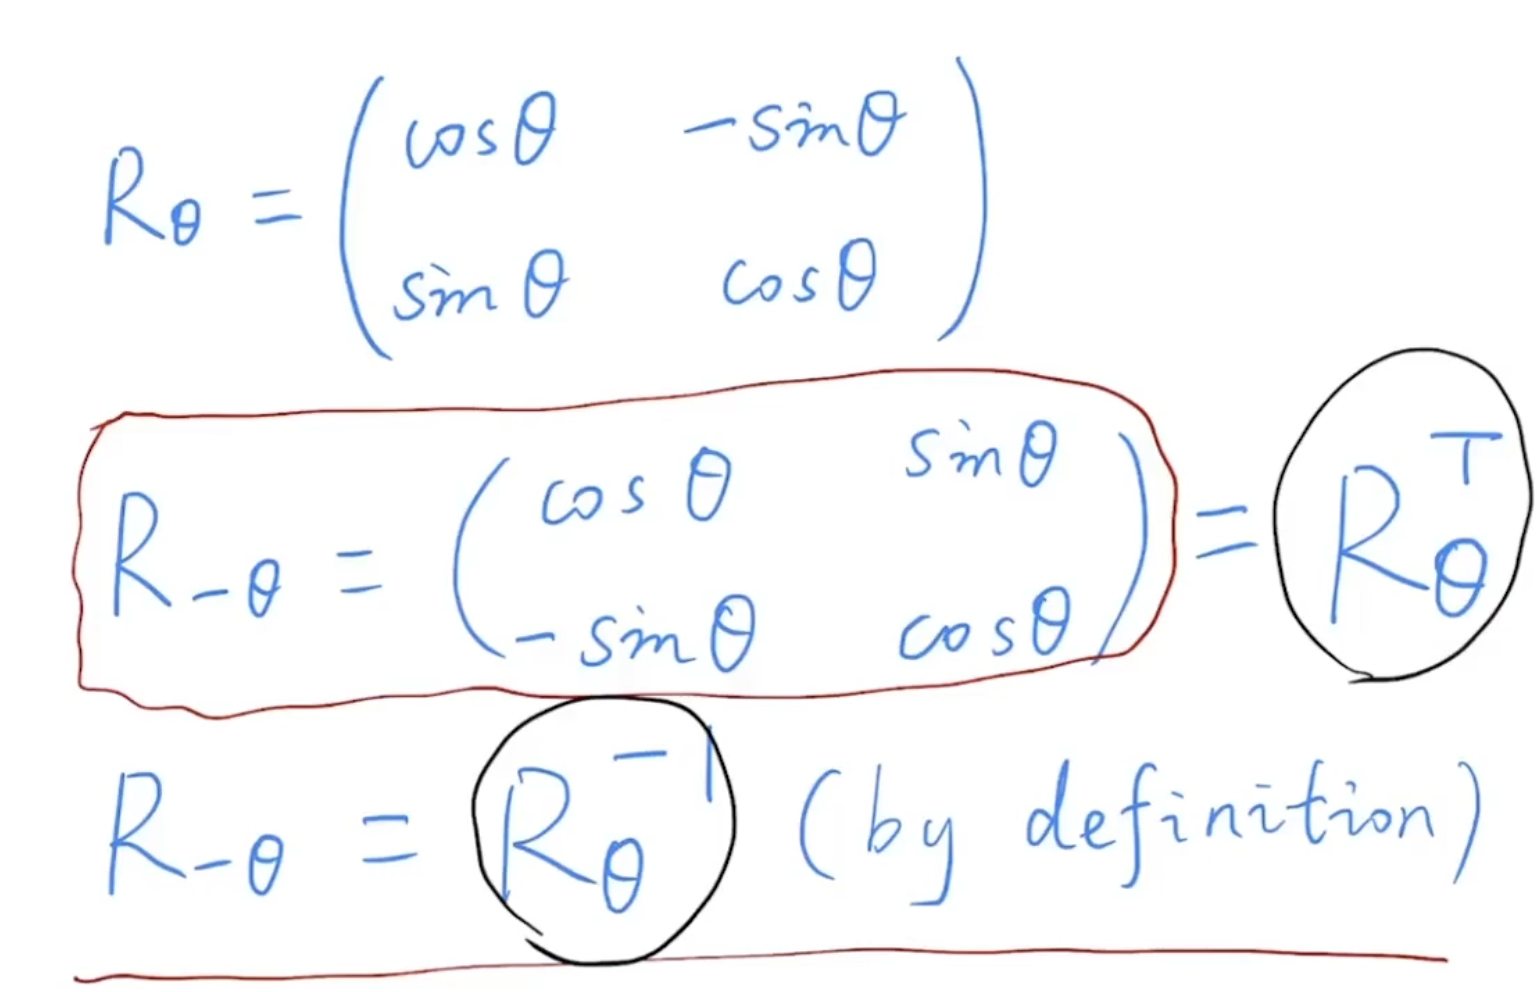 R_θ = ( cosθ -sinθ
sinθ cosθ )
R_-θ = ( cos θ sinθ
-sinθ cosθ ) = R_θ^T
R_-θ = R_θ^-1 (by definition)